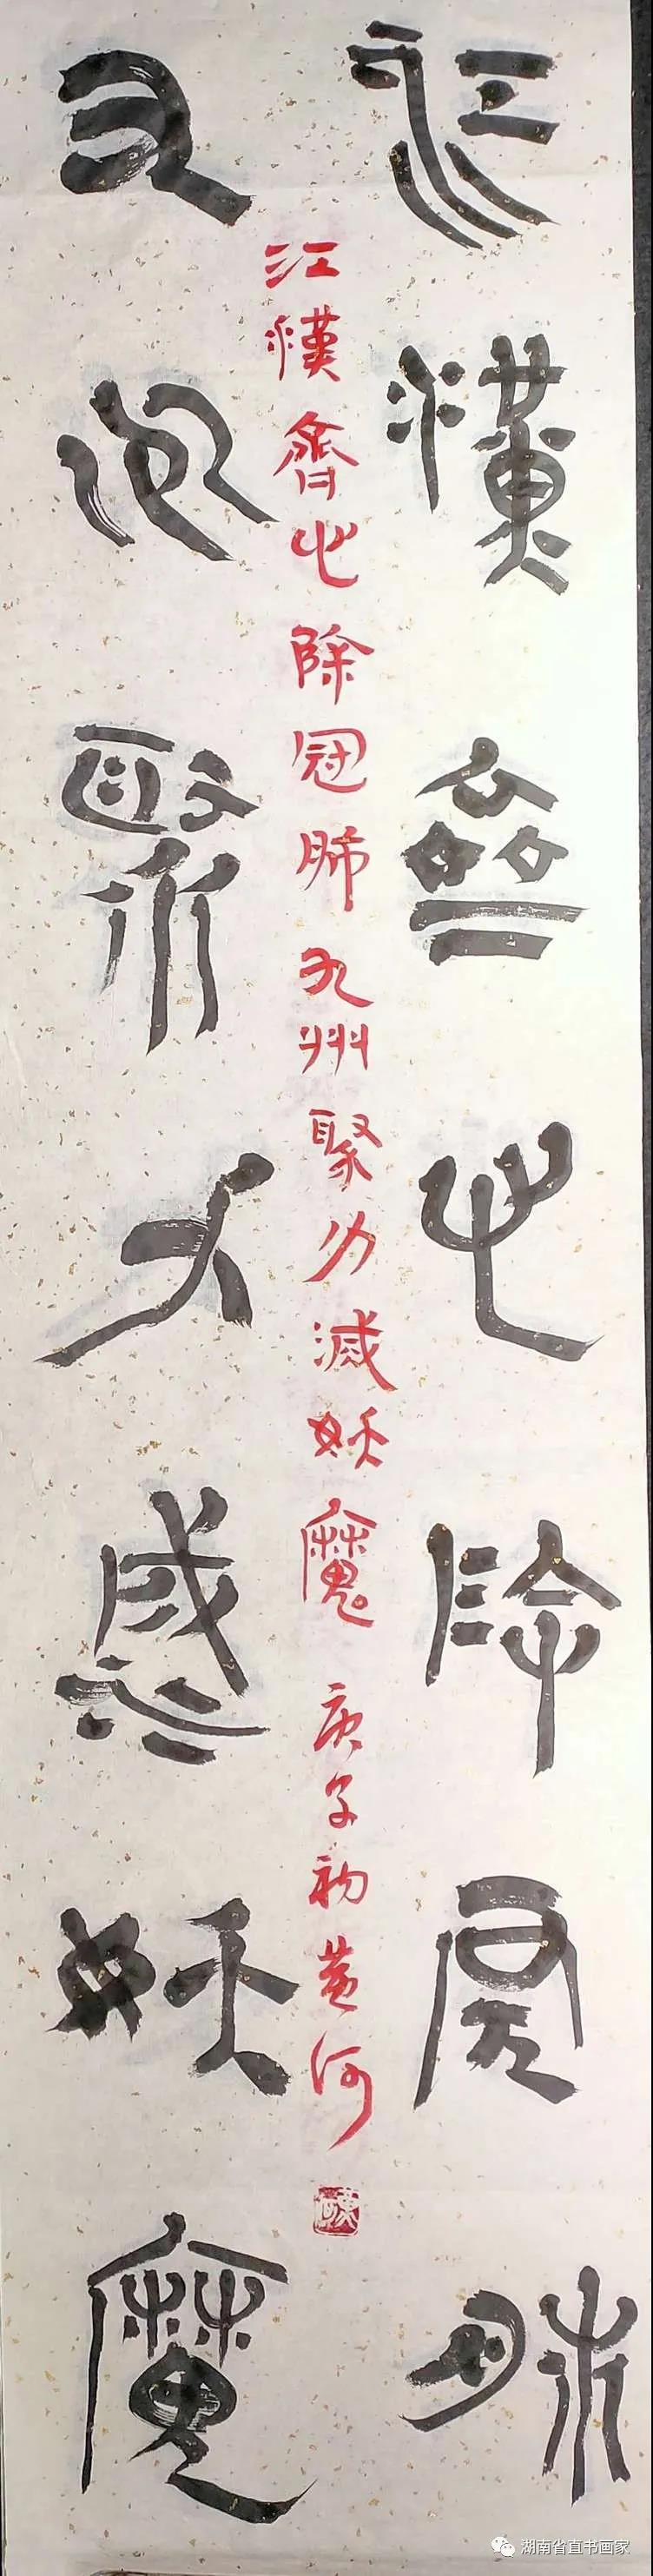 江漢齊心除冠肺
九州聚力滅妖魔
江漢齊心除冠肺九州聚力滅妖魔 庚子初黄河
湖南省直书画家